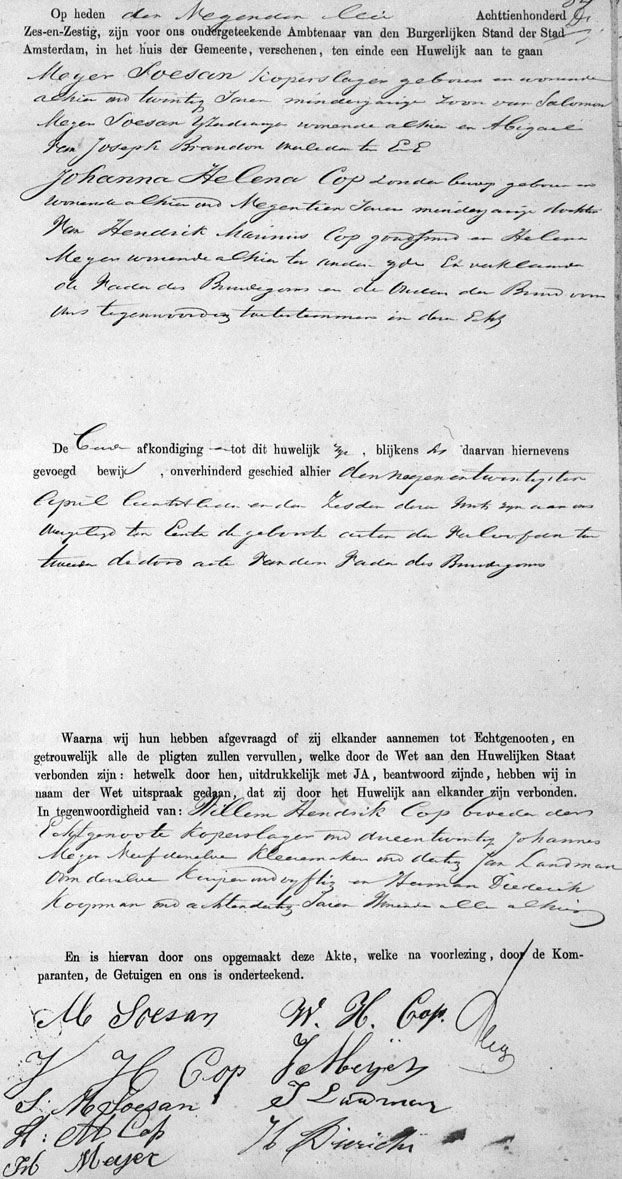 Op heden den Negenden Mei Achttienhonderd
Zes-en-Zestig, zijn voor ons ondergeteekende Ambtenaar van den Burgerlijken Stand der Stad
Amsterdam, in het huis der Gemeente, verschenen, ten einde een Huwelijk aan te gaan
Meyer Soesan Koperslager geboren en wonende
alhier oud twintig Jaren minderjarige zoon van Salomon
Meyer Soesan wonende alhier en Abigael
van Joseph Brandon overleden ter Eene
Johanna Helena Cop zonder beroep geboren en
wonende alhier oud Negentien Jaren minderjarige dochter
van Hendrik Marinus Cop goudsmid en Helena
Meyer wonende alhier ter andere zyde En verklaarden
de Vader des Bruidegoms en de Ouders der Bruid voor
ons tegenwoordig toetestemmen in deze Echt
De afkondiging tot dit huwelijk , blijkens daarvan hiernevens
gevoegd bewijs , onverhinderd geschied alhier den negenentwintigsten
April laatstleden en den Zesden dezer Ende zyn aan ons
overgelegd ten Eerste de geboorte acten der Verloofden ten
tweede de dood acte van den Vader des Bruidegoms
Waarna wij hun hebben afgevraagd of zij elkander aannemen tot Echtgenooten, en
getrouwelijk alle de pligten zullen vervullen, welke door de Wet aan den Huwelijken Staat
verbonden zijn: hetwelk door hen, uitdrukkelijk met JA, beantwoord zijnde, hebben wij in
naam der Wet uitspraak gedaan, dat zij door het Huwelijk aan elkander zijn verbonden.
In tegenwoordigheid van: Willem Hendrik Cop broeder der
Echtgenoote Koperslager oud drieentwintig Johannes
Meyer Neef derzelve Kleermaker oud dertig Jan Landman
Oom derzelve Kuiper oud vyftig en Herman Diederik
Koopman oud achtendertig Jaren Wonende alle alhier
En is hiervan door ons opgemaakt deze Akte, welke na voorlezing, door de Kom-
paranten, de Getuigen en ons is onderteekend.
M Soesan W. H. Cop.
J H Cop J Meijer
S. M Soesan J Landman
H: M Cop H Dierich
H Meyer